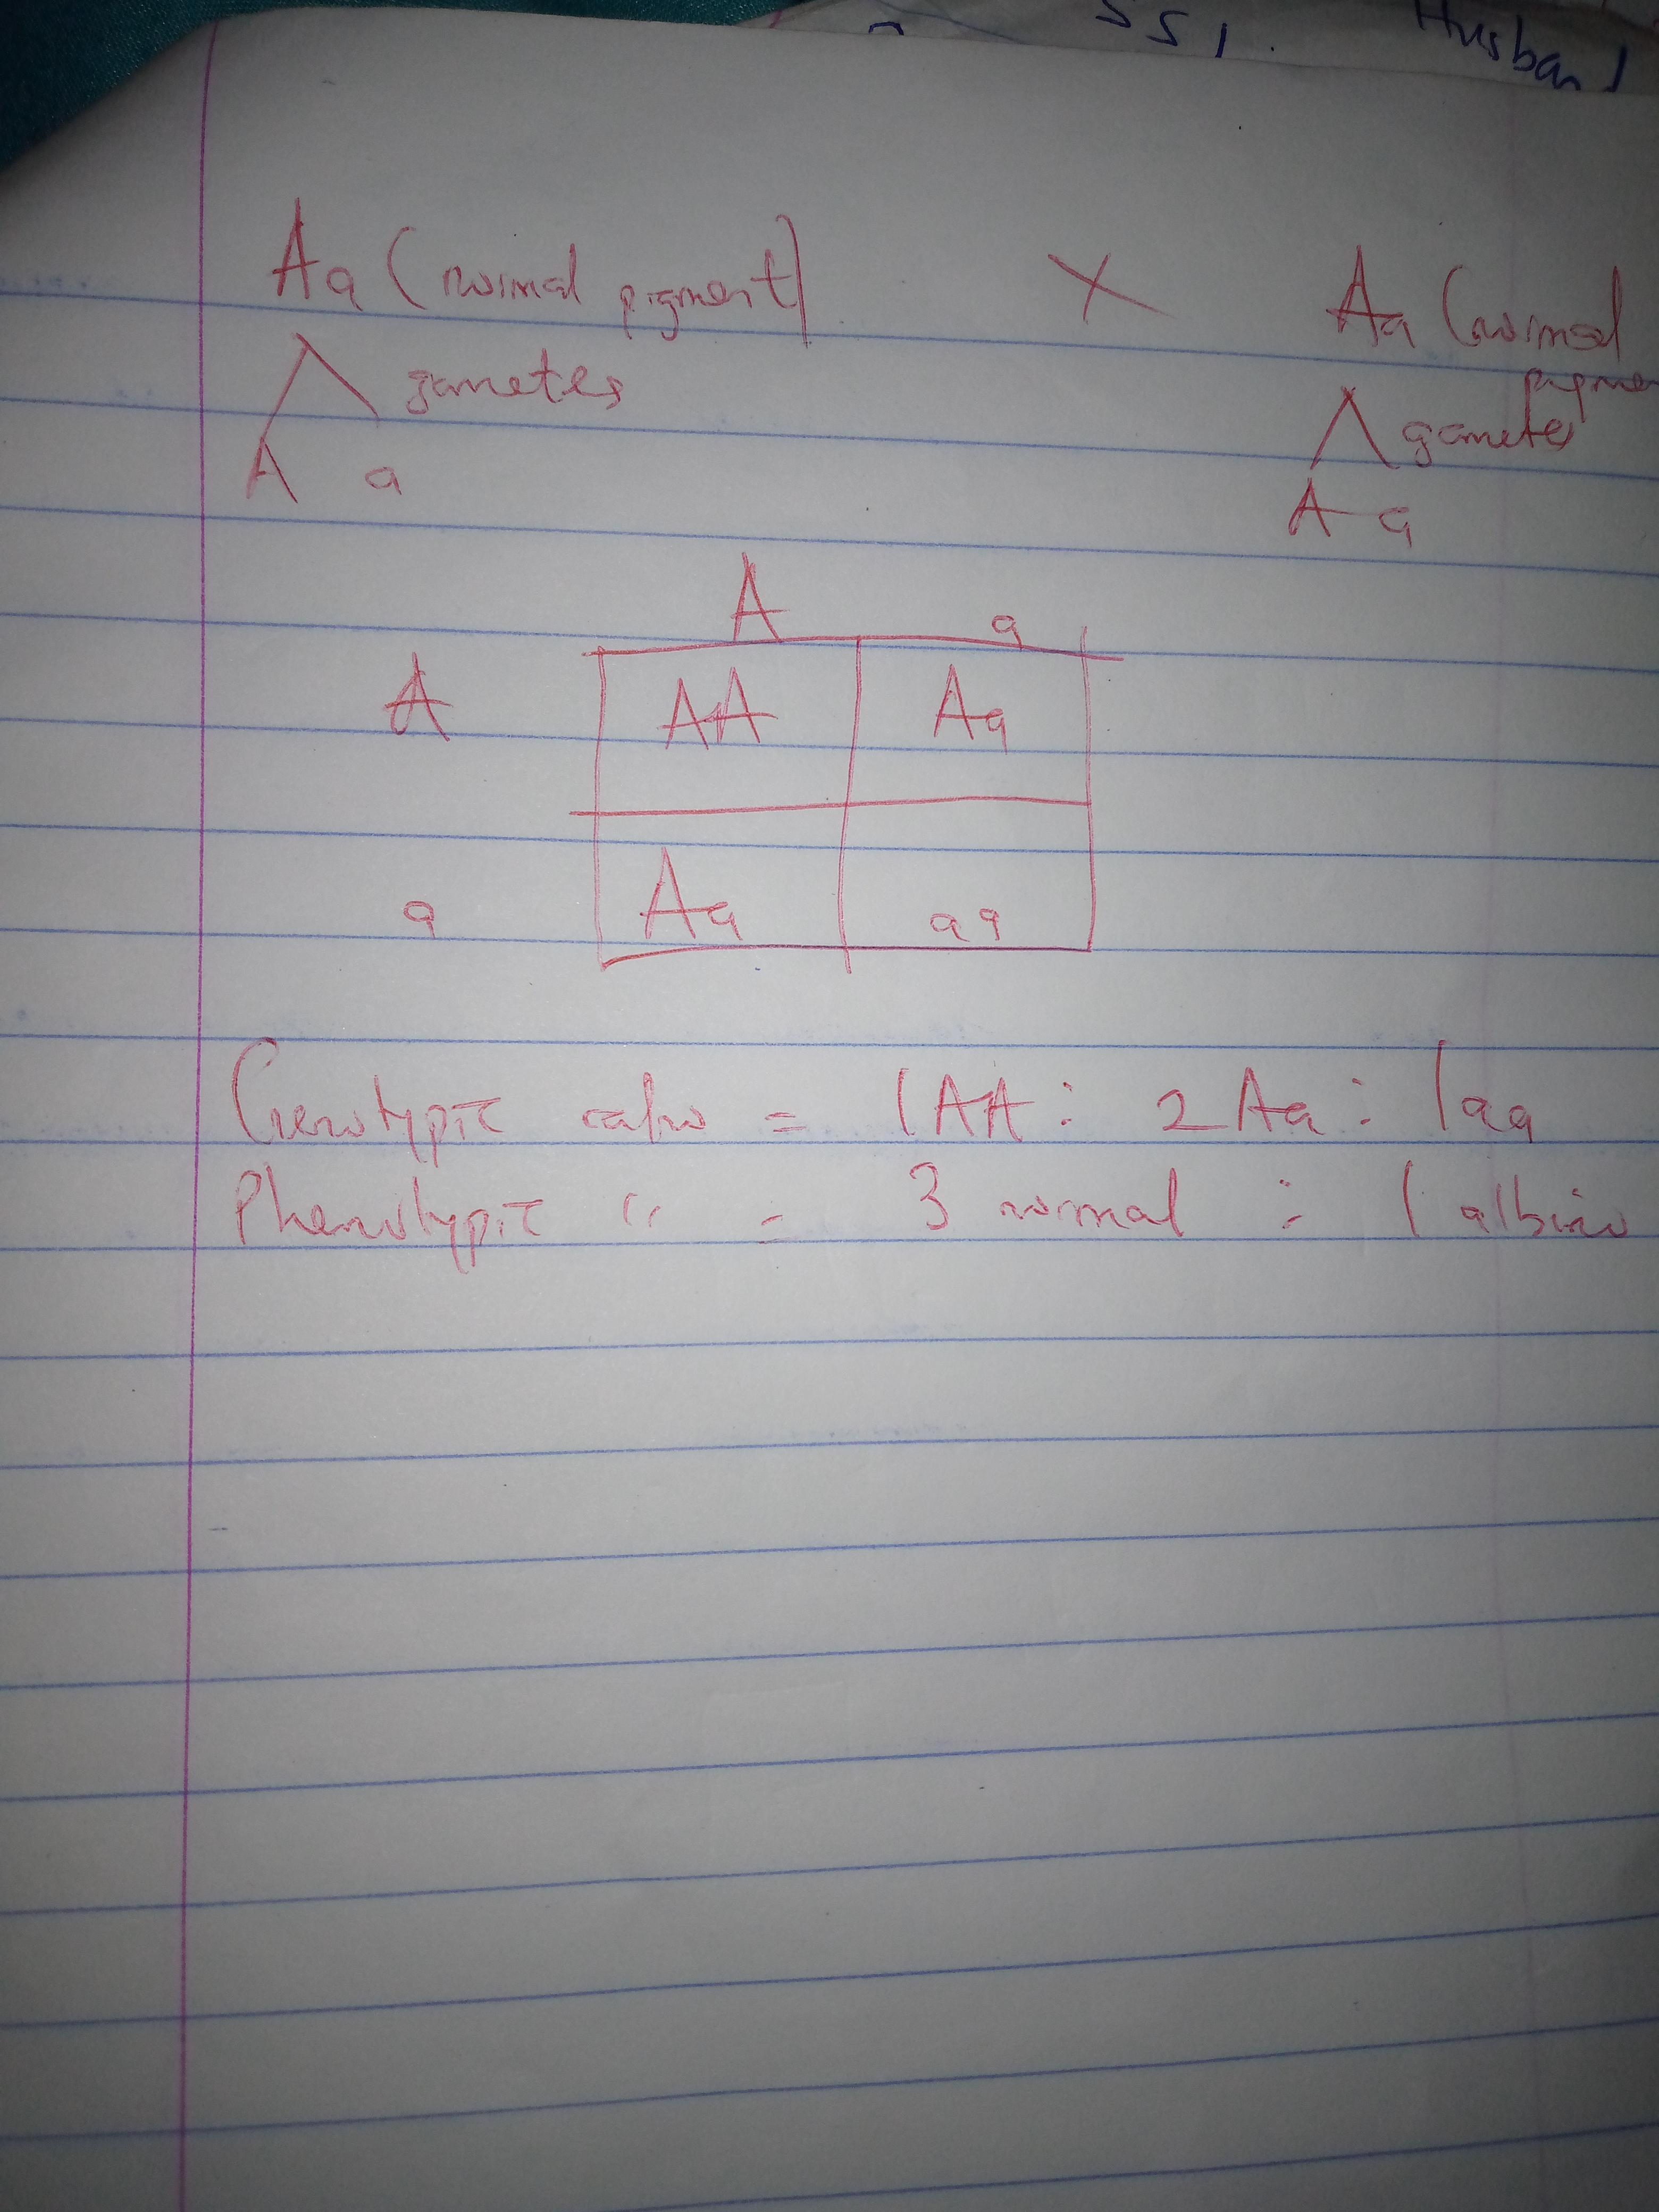 SS1. Husband
Aa (normal pigment) X Aa (normal
pigmen
gametes gametes
A a A a
A a
A AA Aa
a Aa aa
Genotypic ratio = 1AA : 2Aa : 1aa
Phenotypic " = 3 normal : 1 albino